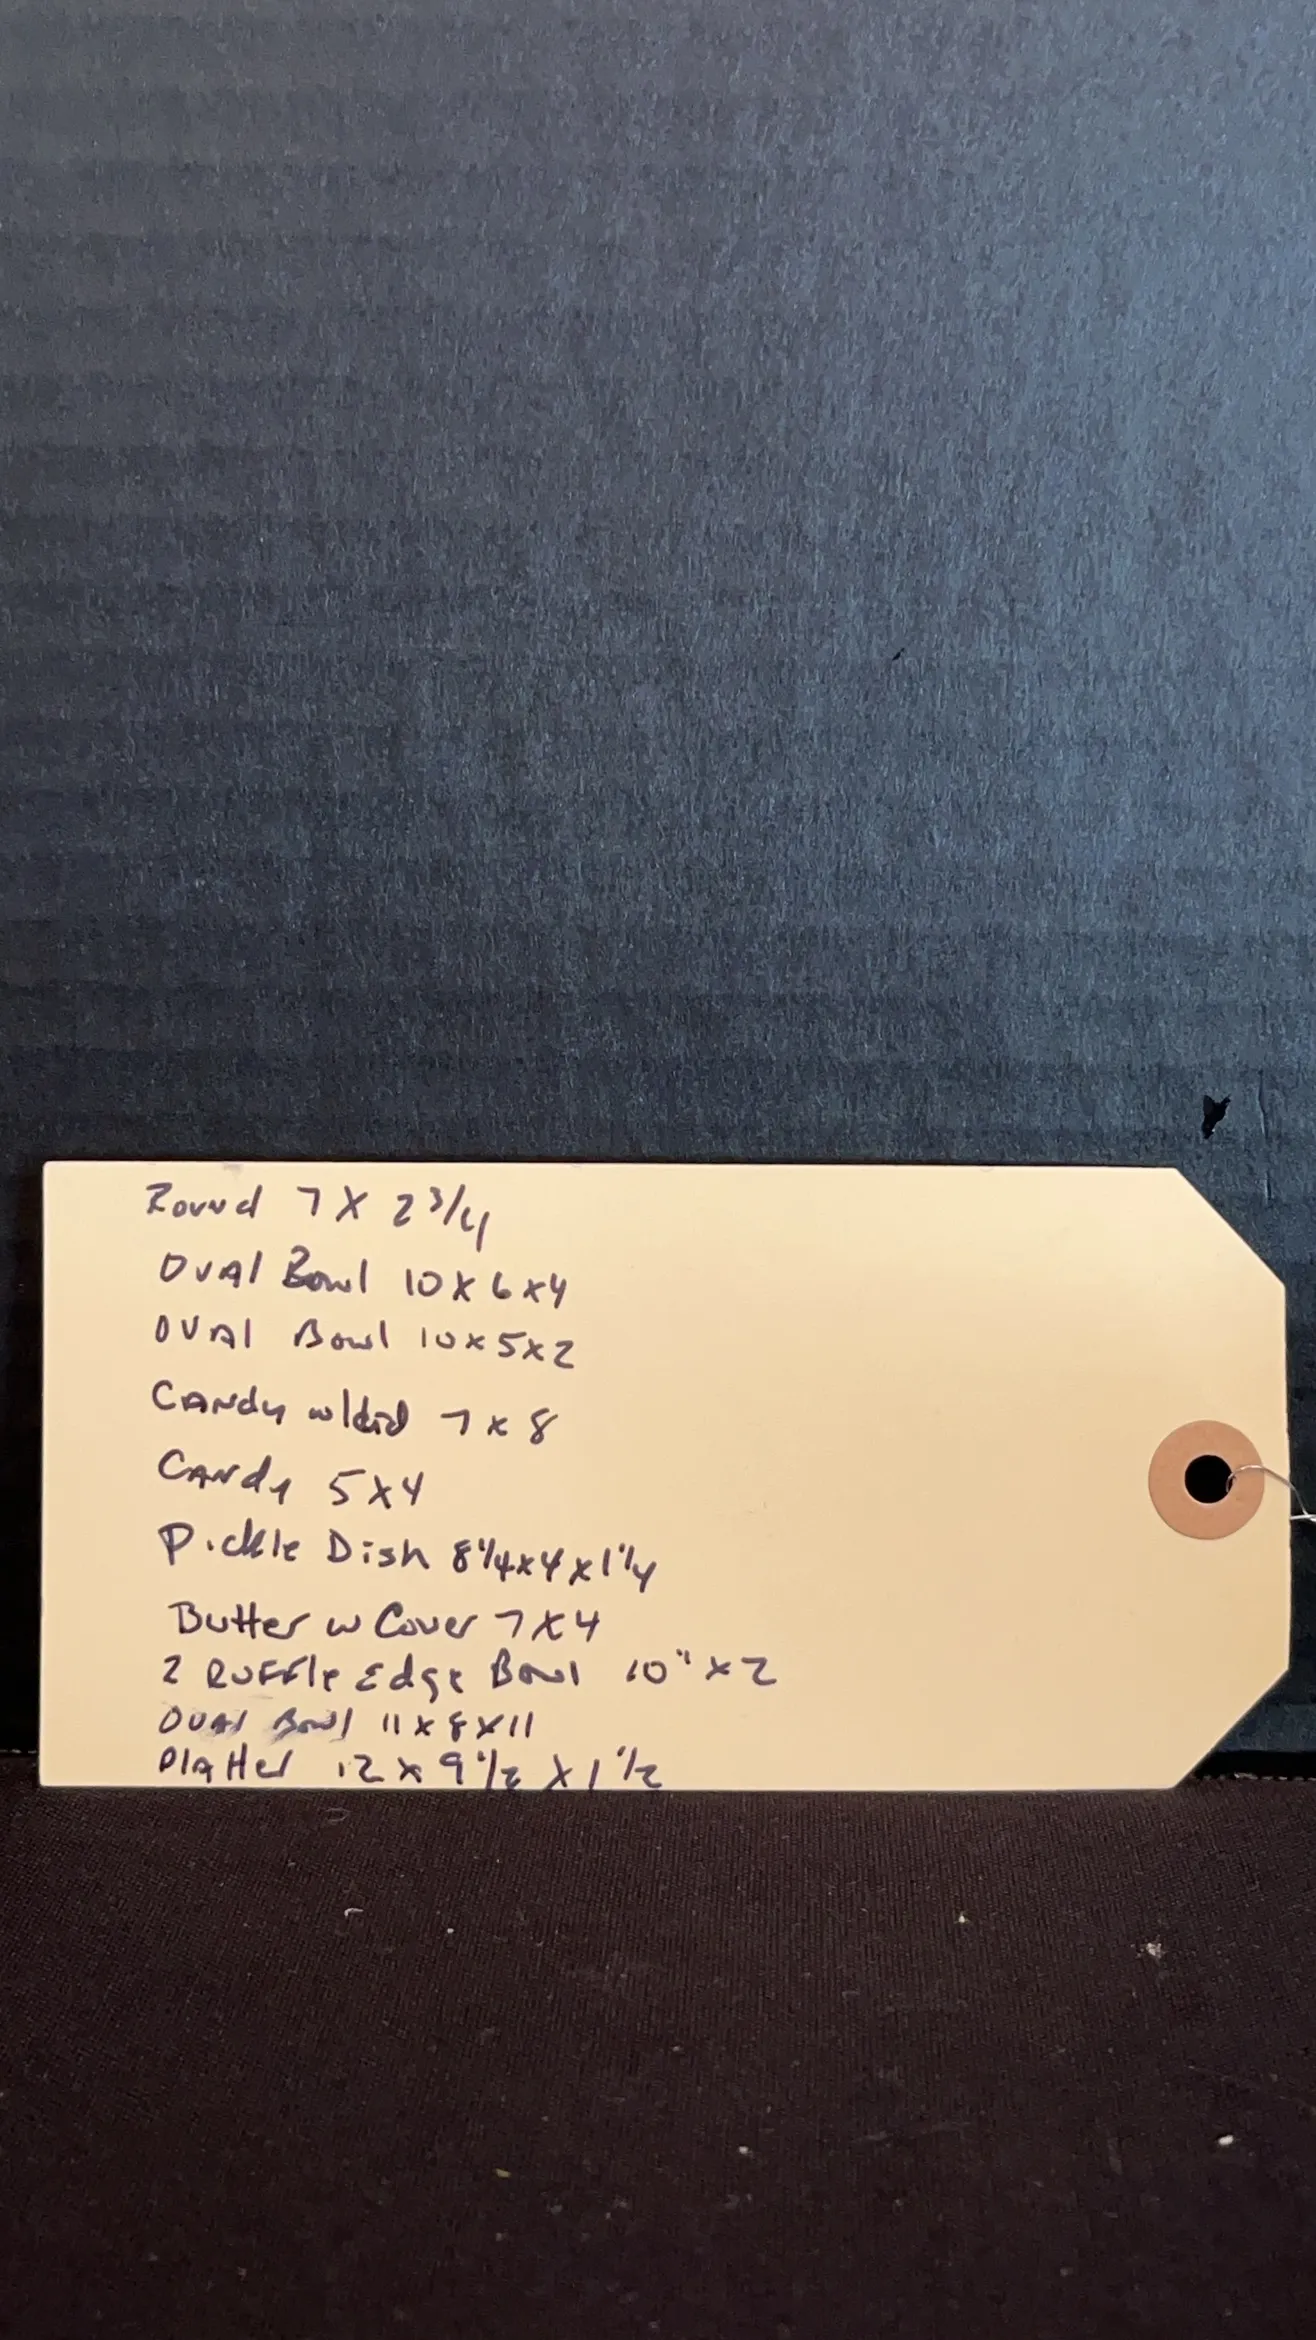 Round 7 X 2 3/4
OVAl Bowl 10 X 6 x 4
OVAl Bowl 10 x 5 x 2
CANdy w/lid 7 x 8
CANdy 5 X 4
Pickle Dish 8 1/4 x 4 x 1 1/4
Butter w Cover 7 X 4
2 RUFFle Edge Bowl 10" x 2
OVAl Bowl 11 x 8 x 11
PlAtter 12 x 9 1/2 X 1 1/2